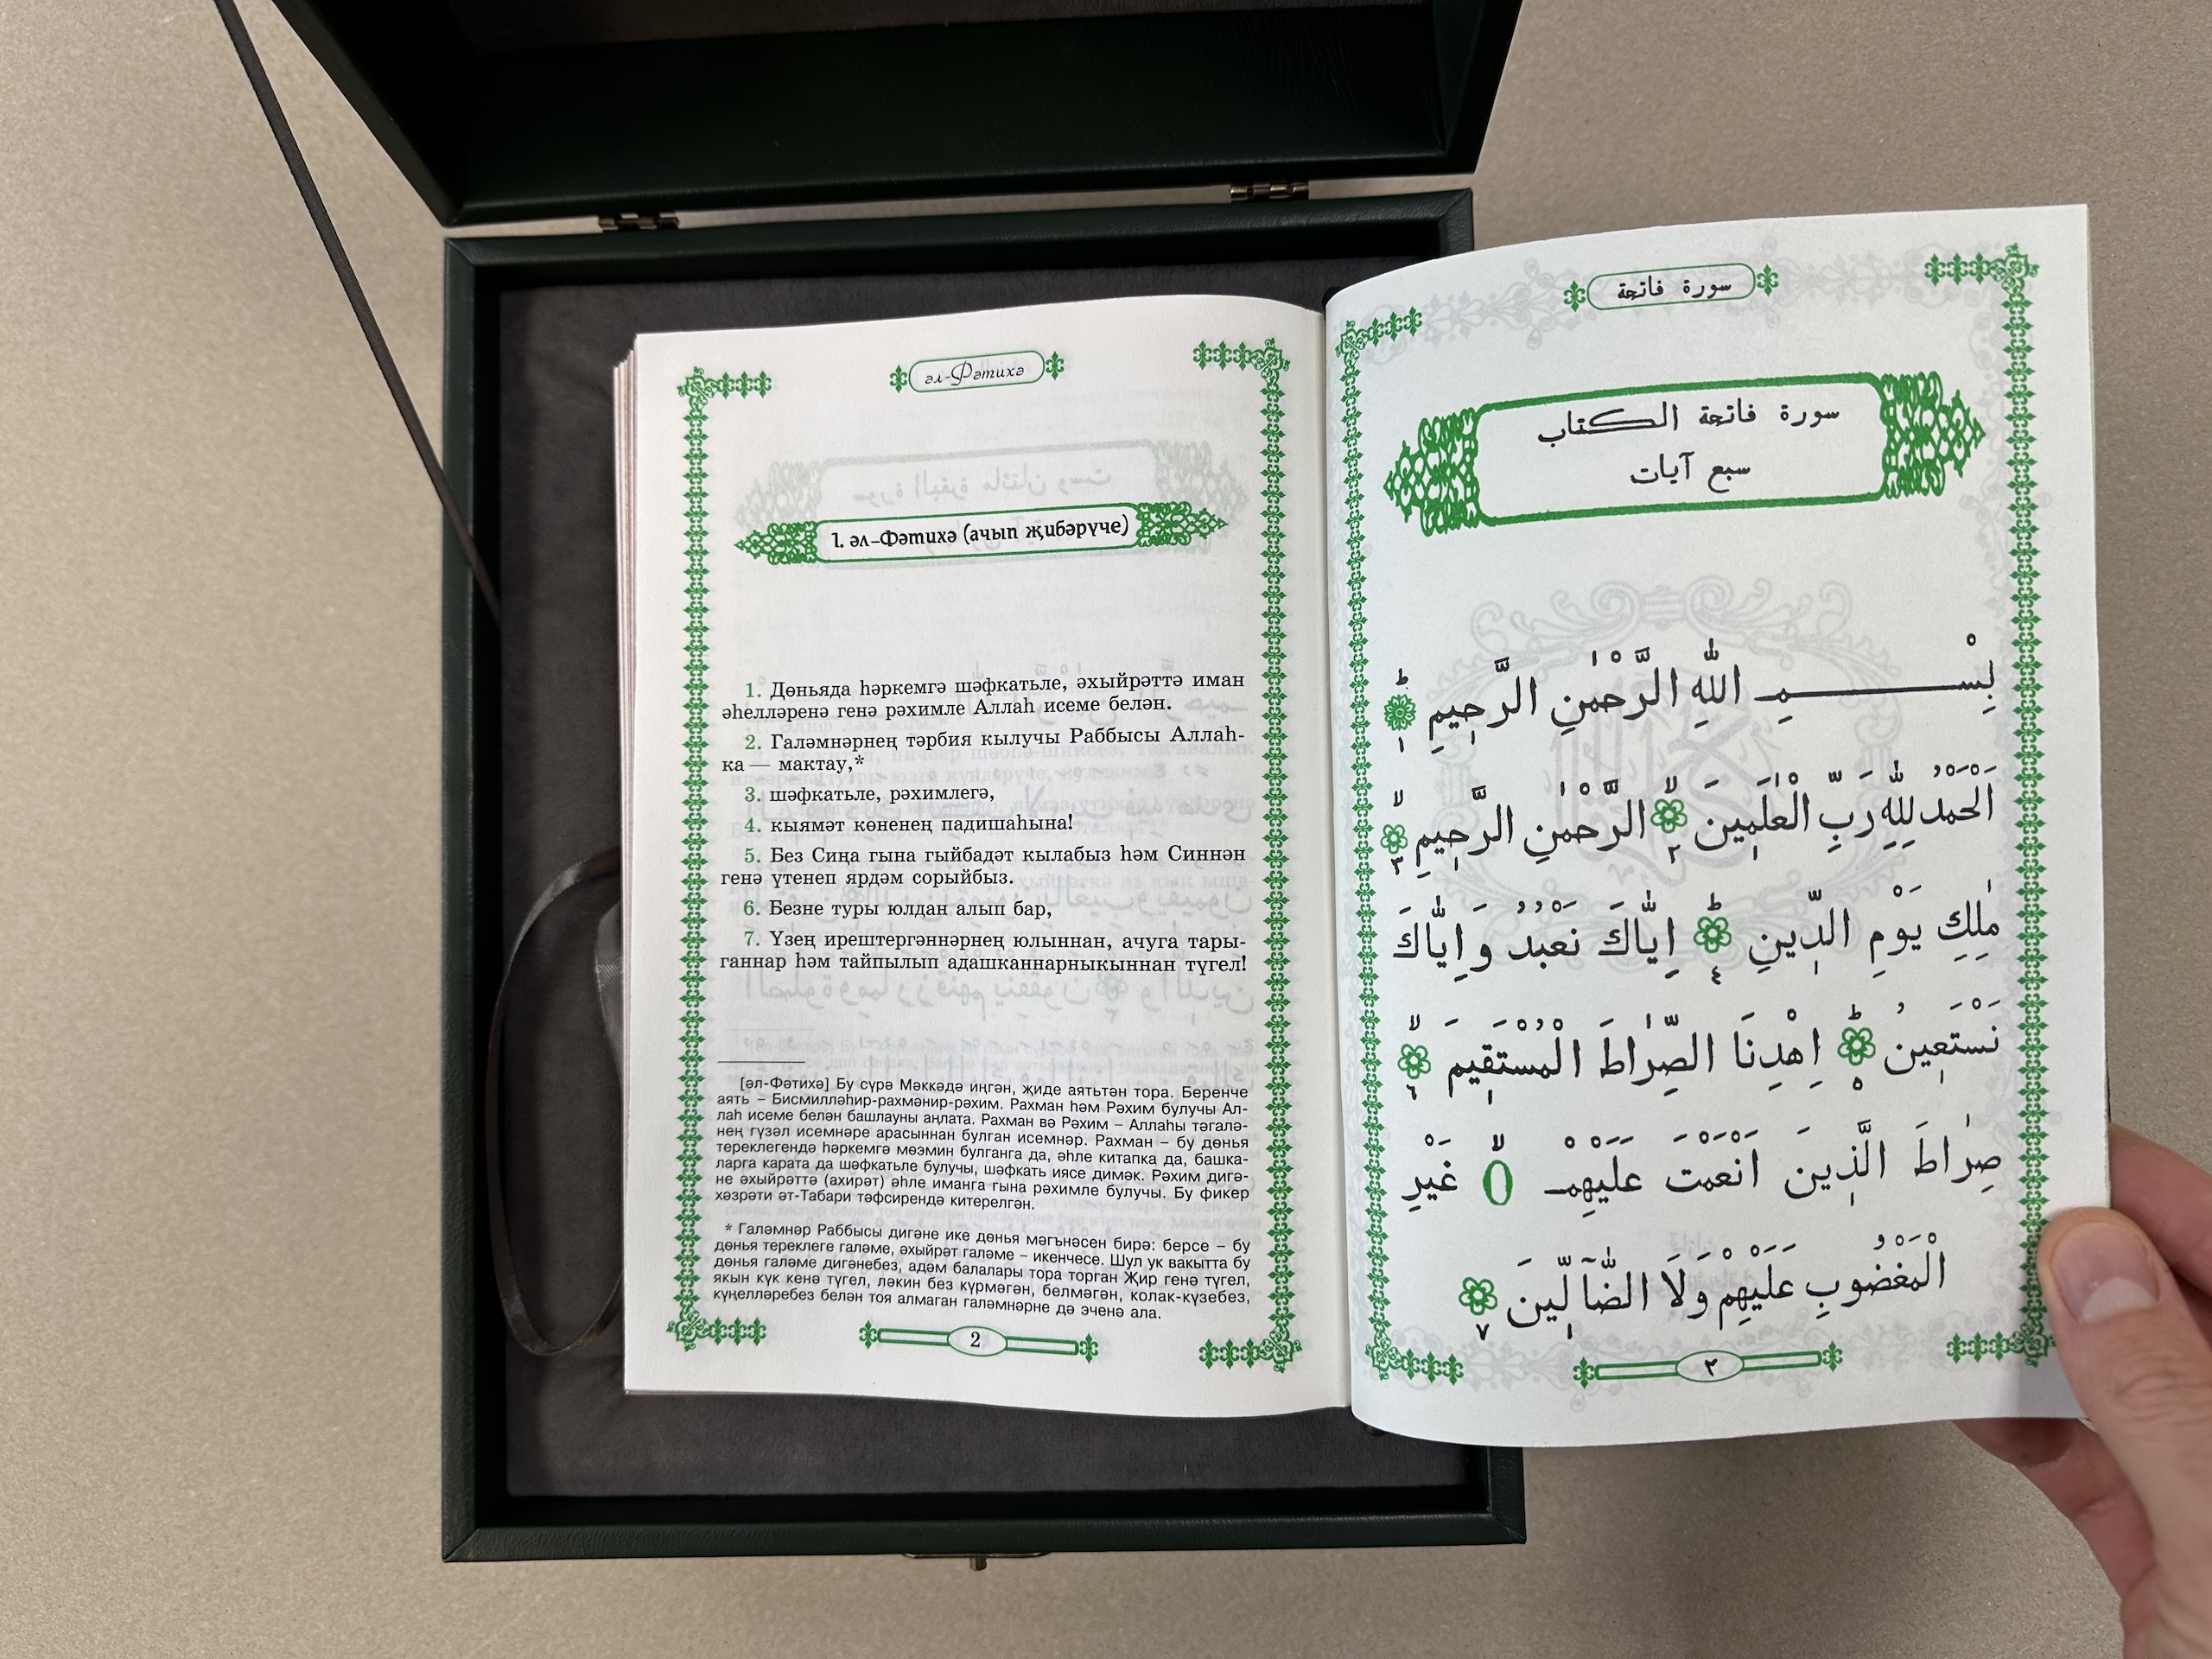 әл-Фәтихә
1. әл-Фәтихә (ачып җибәрүче)
1. Дөньяда һәркемгә шәфкатьле, әхыйрәттә иман
әһелләренә генә рәхимле Аллаһ исеме белән.
2. Галәмнәрнең тәрбия кылучы Раббысы Аллаһ-
ка — мактау,*
3. шәфкатьле, рәхимлегә,
4. кыямәт көненең падишаһына!
5. Без Сиңа гына гыйбадәт кылабыз һәм Синнән
генә үтенеп ярдәм сорыйбыз.
6. Безне туры юлдан алып бар,
7. Үзең ирештергәннәрнең юлыннан, ачуга тары-
ганнар һәм тайпылып адашканнарныкыннан түгел!
[әл-Фәтихә] Бу сүрә Мәккәдә иңгән, җиде аятьтән тора. Беренче
аять – Бисмилләһир-рахмәнир-рәхим. Рахман һәм Рәхим булучы Ал-
лаһ исеме белән башлауны аңлата. Рахман вә Рәхим – Аллаһы тәгалә-
нең гүзәл исемнәре арасыннан булган исемнәр. Рахман – бу дөнья
тереклегендә һәркемгә мөэмин булганга да, әһле китапка да, башка-
ларга карата да шәфкатьле булучы, шәфкать иясе димәк. Рәхим диге-
не әхыйрәттә (ахирәт) әһле иманга гына рәхимле булучы. Бу фикер
хәзрәти әт-Табари тәфсирендә китерелгән.
* Галәмнәр Раббысы дигәне ике дөнья мәгънәсен бирә: берсе – бу
дөнья тереклеге галәме, әхыйрәт галәме – икенчесе. Шул ук вакытта бу
дөнья галәме дигәнебез, адәм балалары тора торган Җир генә түгел,
якын күк кенә түгел, ләкин без күрмәгән, белмәгән, колак-күзебез,
күңелләребез белән тоя алмаган галәмнәрне дә эченә ала.
2
سورة فاتحة
سورة فاتحة الكتاب
سبع آيات
بِسْــــــمِ اللّٰهِ الرَّحْمٰنِ الرَّحِيمِ ط ١
اَلْحَمْدُ لِلّٰهِ رَبِّ الْعٰلَمِينَ لا ٢ الرَّحْمٰنِ الرَّحِيمِ لا ٣
مٰلِكِ يَوْمِ الدِّينِ ط ٤ اِيَّاكَ نَعْبُدُ وَاِيَّاكَ
نَسْتَعِينُ ط ٥ اِهْدِنَا الصِّرٰاطَ الْمُسْتَقِيمَ لا ٦
صِرٰاطَ الَّذِينَ اَنْعَمْتَ عَلَيْهِمْ لا غَيْرِ
الْمَغْضُوبِ عَلَيْهِمْ وَلَا الضَّآلِّينَ ٧
٣